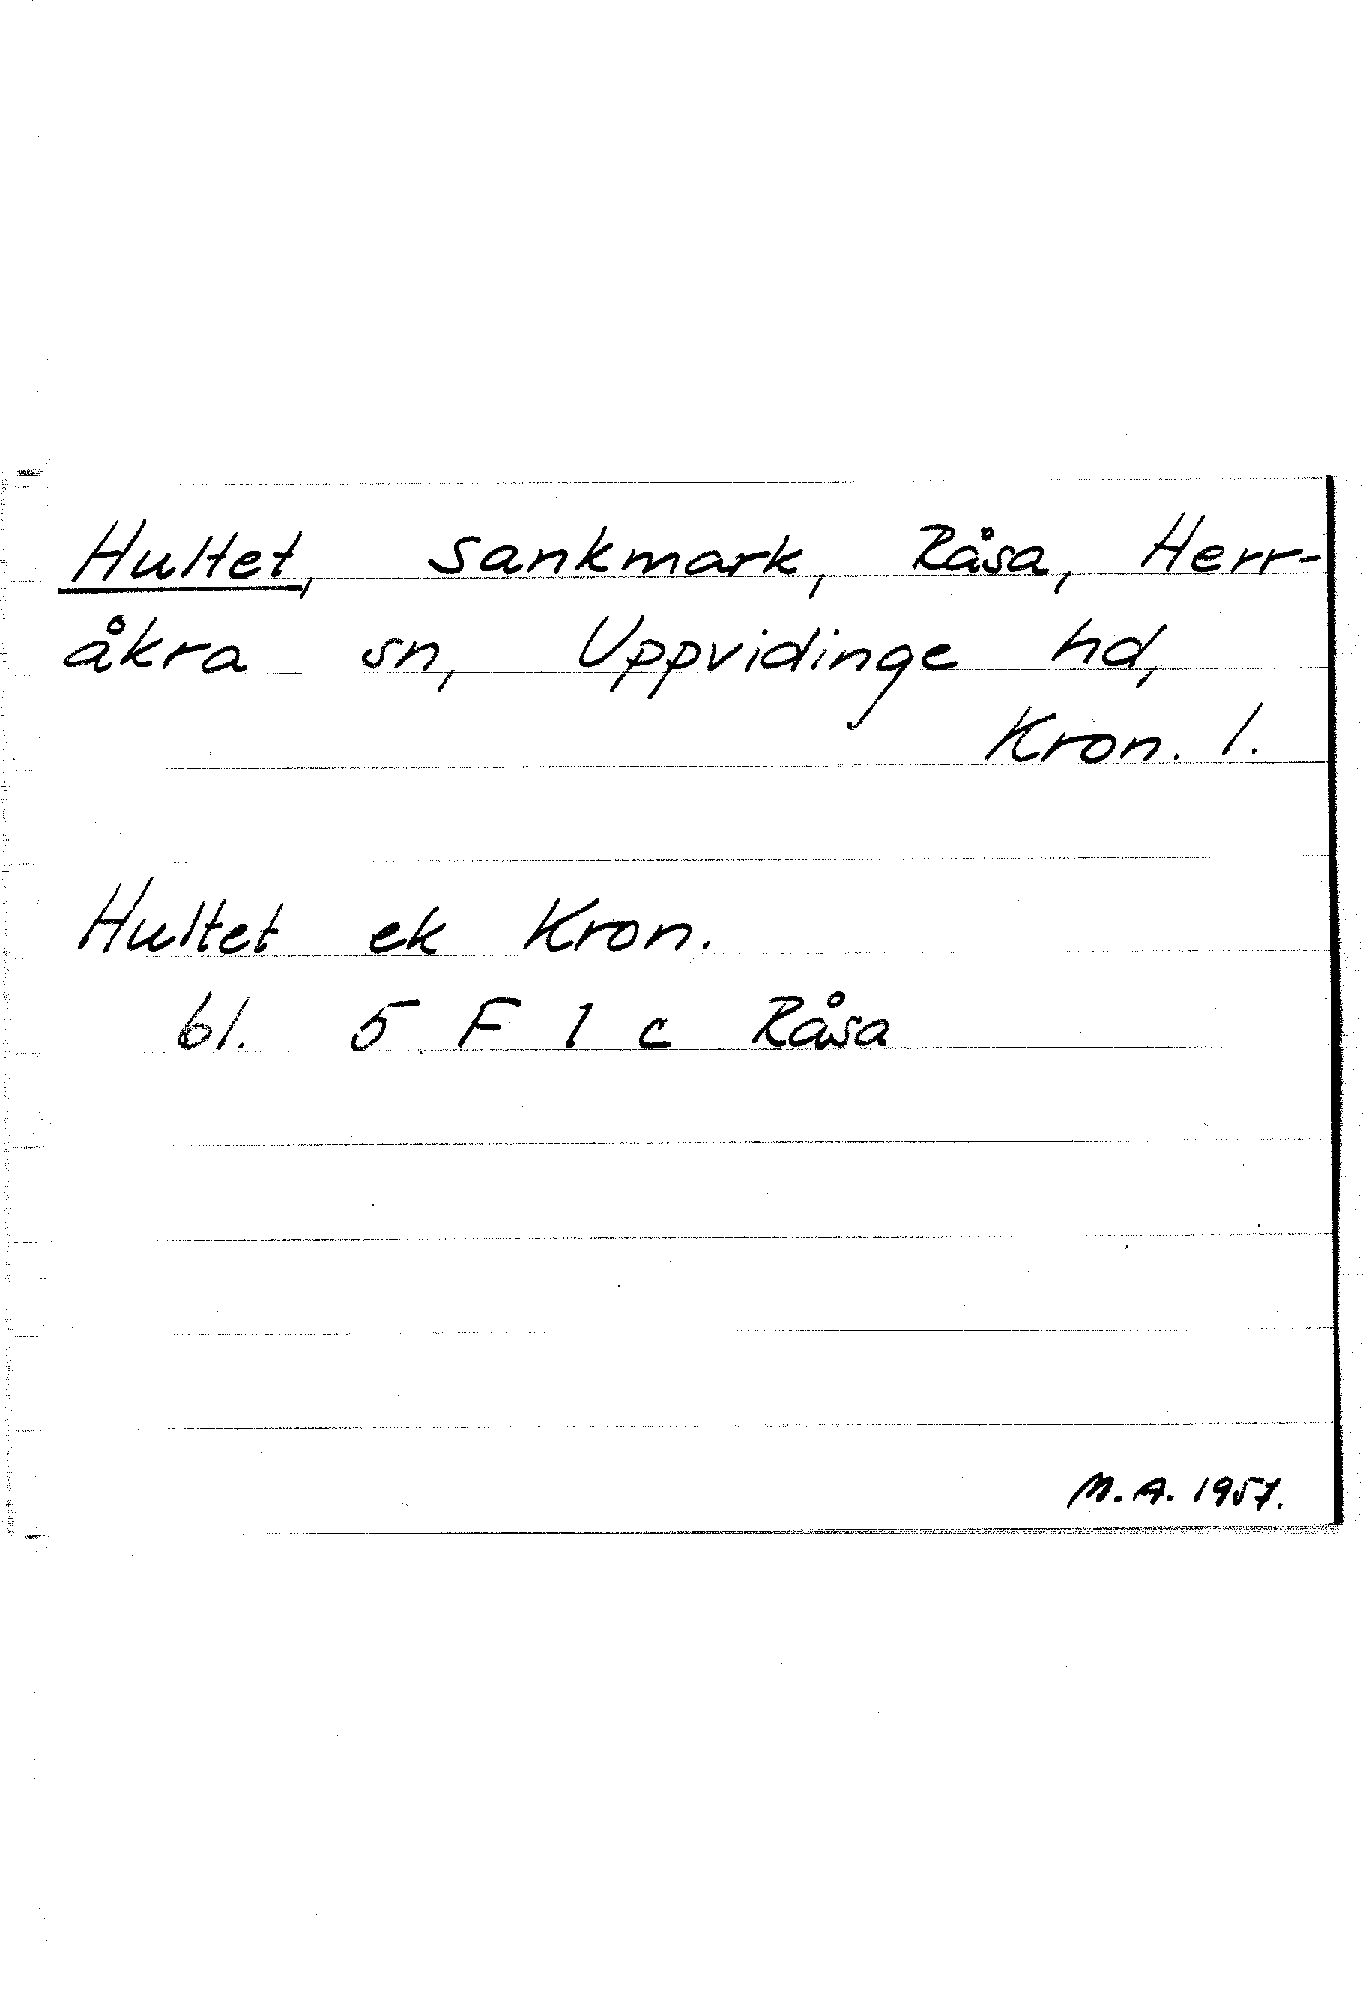 Hultet, sankmark, Råsa, Herr-
åkra sn, Uppvidinge hd,
Kron. l.
Hultet ek Kron.
bl. 5 F 1 c Råsa
M.A. 1957.